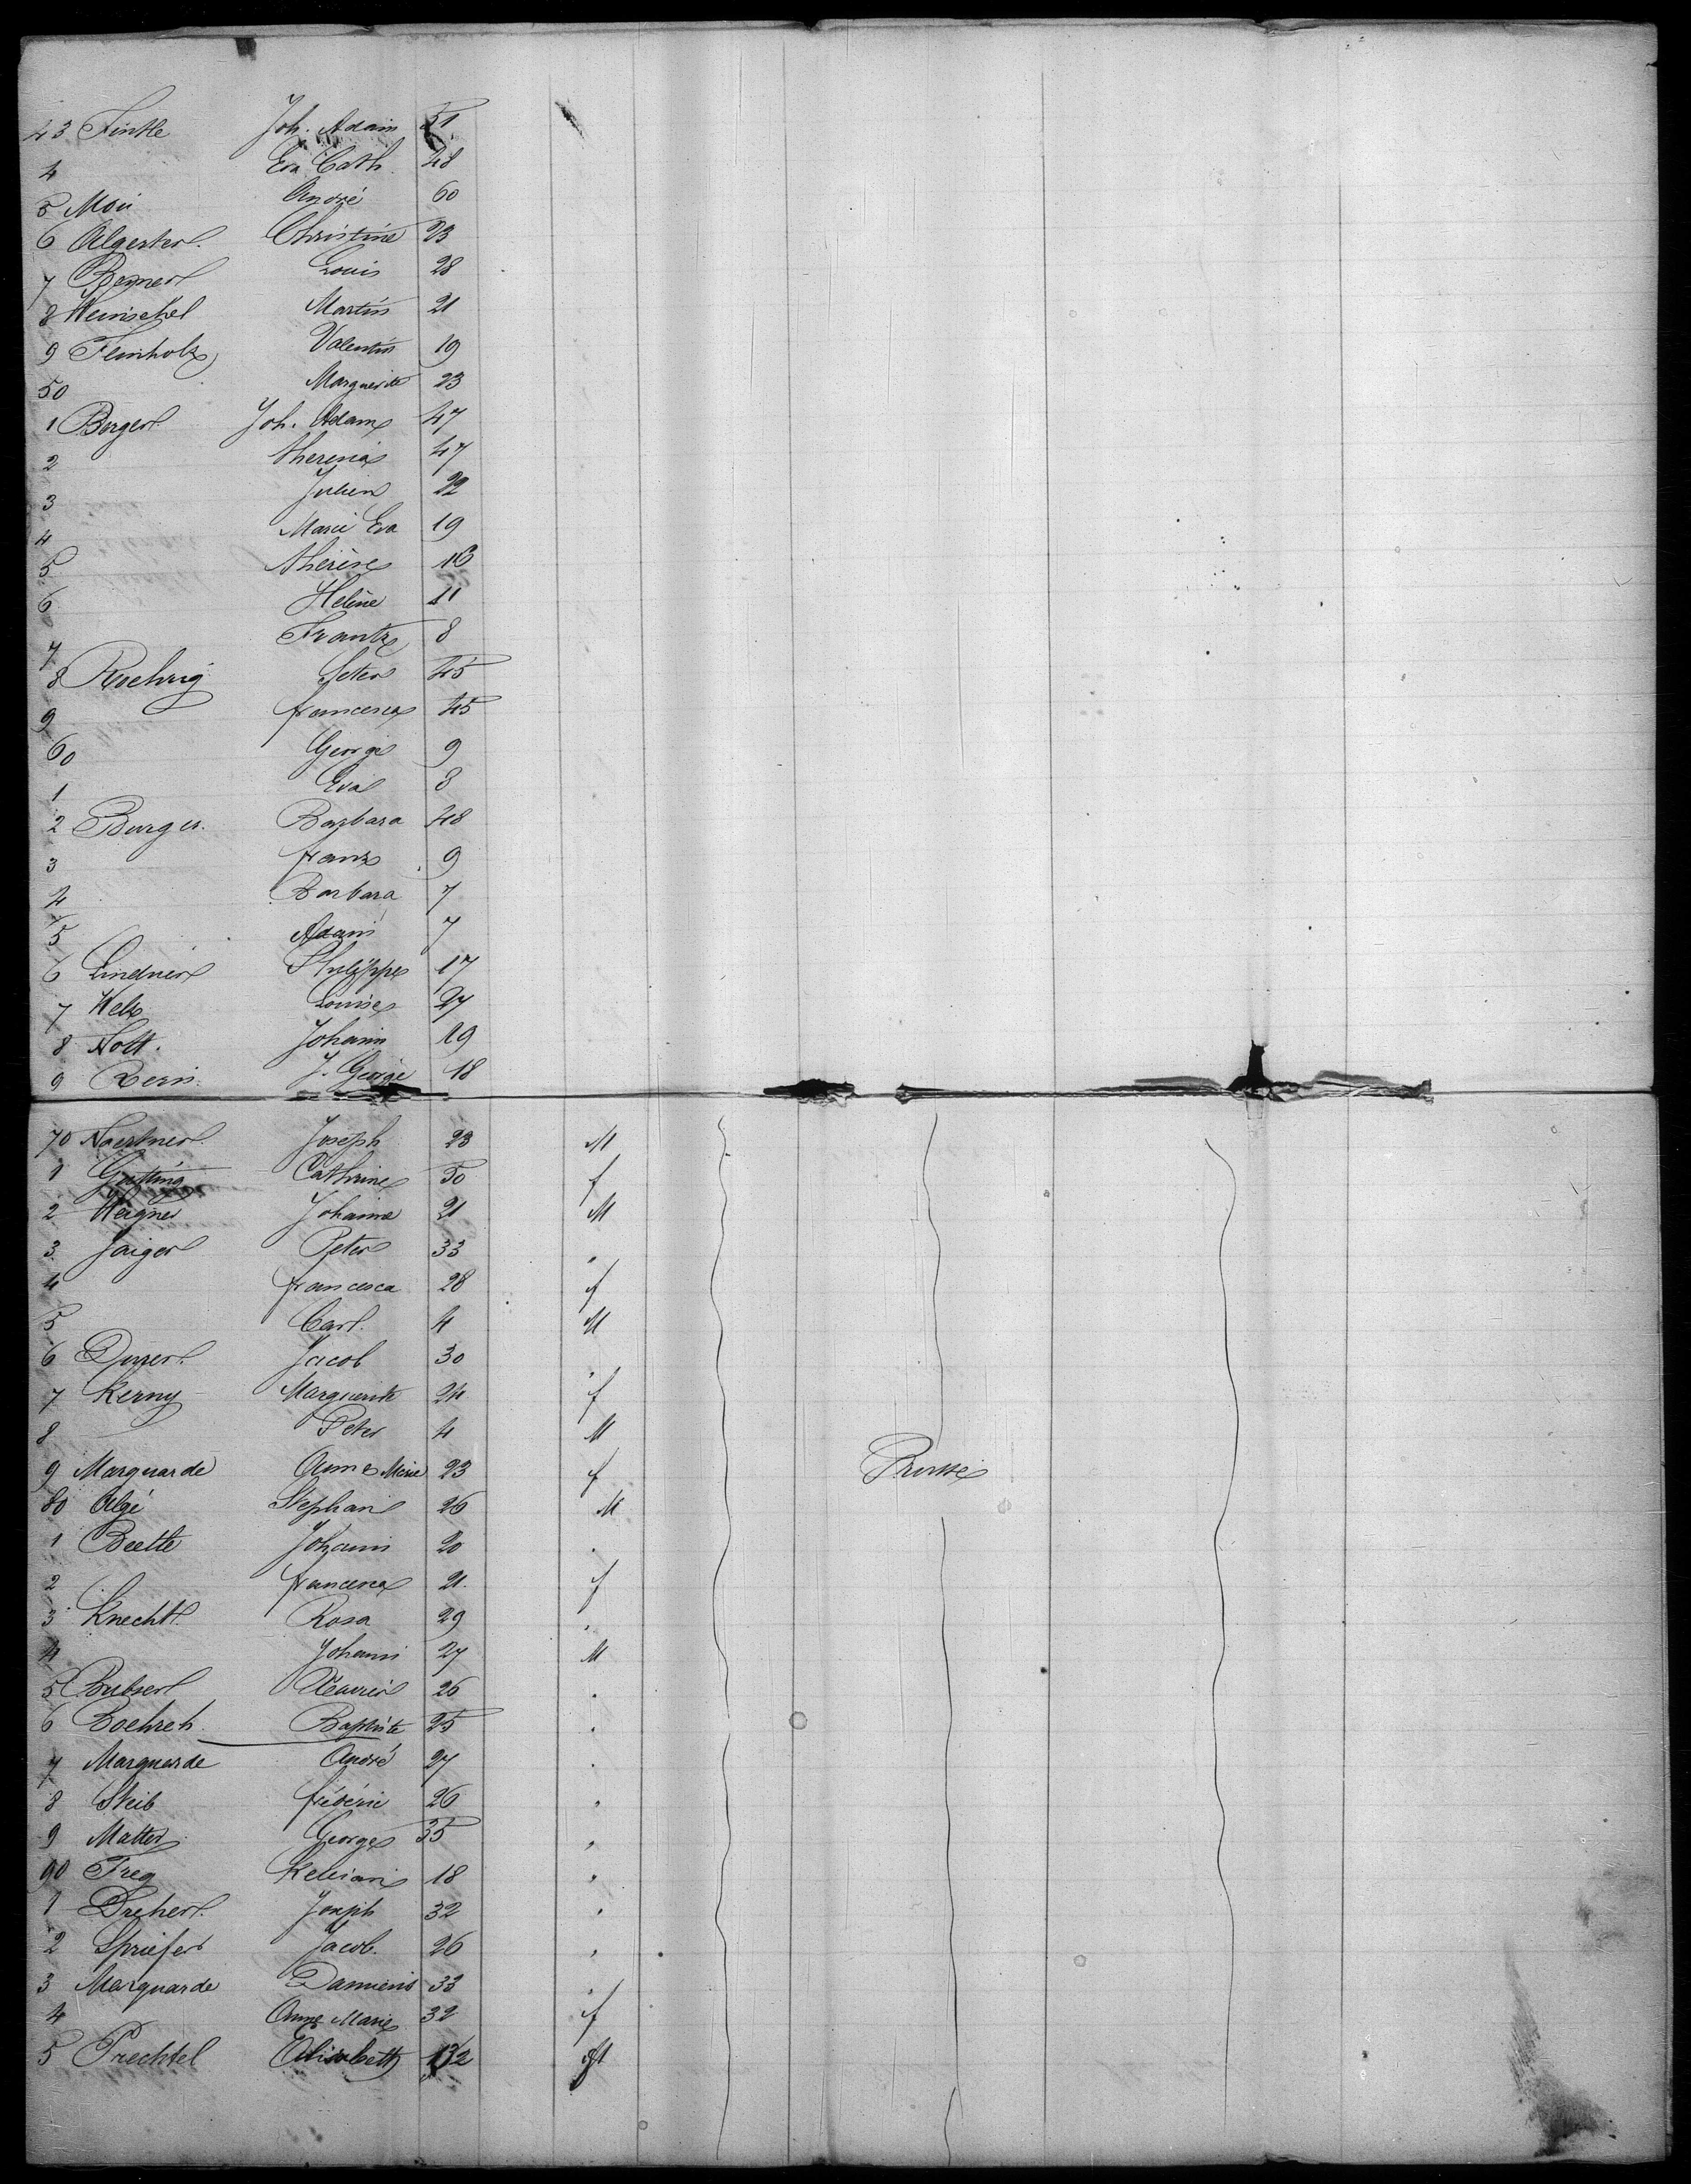 43 Finkle Joh. Adam 51
4 Eva Cath. 48
5 Moii André 60
6 Algester Christine 23
7 Beyner Louis 28
8 Heinschel Martin 21
9 Flinholz Valentin 19
50 Marguerite 23
1 Berger Joh. Adam 47
2 theresia 47
3 Julien 22
4 Marie Eva 19
5 thérèse 16
6 Helène 11
7 Frantz 8
8 Roehrig Peter 45
9 francesca 45
60 George 9
1 Eva 8
2 Burger Barbara 48
3 franz 9
4 Barbara 7
5 Adam 7
6 Lindner Philippe 17
7 Welz Louise 27
8 Nott. Johann 19
9 Bern J. George 18
70 Naertner Joseph 23 M
1 Gutting Cathrine 50 f
2 Wagner Johann 21 M
3 Jaiger Peter 33 "
4 francesca 28 f
5 Carl 4 M
6 Durer Jacob 30 "
7 Kerny Marguerite 24 f
8 Peter 4 M
9 Marquarde Anne Marie 23 f Prusse
80 Algé Stephan 26 M
1 Beette Johann 20 "
2 francesca 21. f
3 Knecht Rosa 29 "
4 Johann 27 M
5 Bubser Xavier 26 "
6 Boehreh Baptiste 25 "
7 Marquarde André 27 "
8 Steib fréderic 26 "
9 Matter George 35 "
90 Freg Kelian 18 "
1 Dreher Joseph 32 "
2 Spriefer Jacob 26 "
3 Marquarde Damien 33 "
4 Anne Marie 32 f
5 Prechtel Elisabeth 32